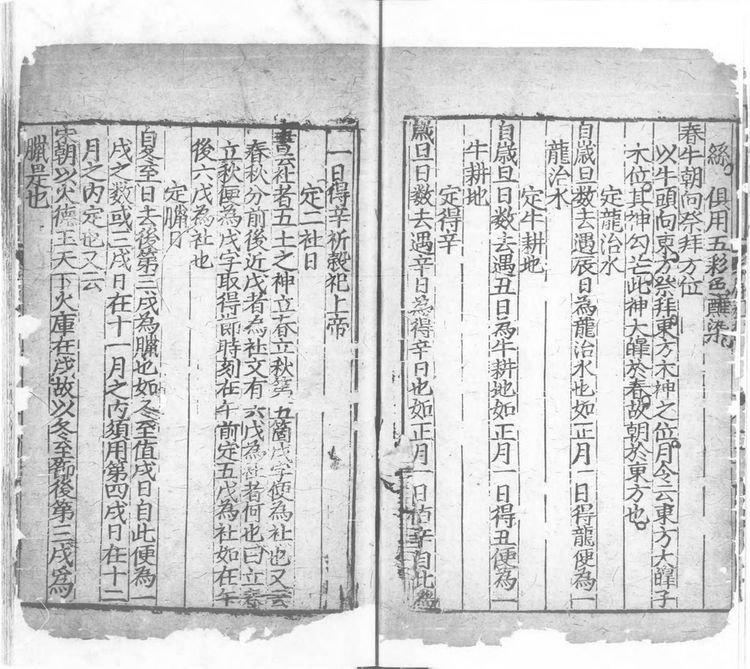 絲俱用五彩色蘸染
春牛朝向祭拜方位
以牛頭向東方祭拜東方木神之位月令云東方大皡子
木位其神勾芒此神大皡於春故朝於東方也
定龍治水
自歲旦數去遇辰日為龍治水也如正月一日得龍便為一
龍治水
定牛耕地
自歲旦日數去遇丑日為牛耕地如正月一日得丑便為一
牛耕地
定得辛
歲旦日數去遇辛日為得辛日也如正月一日佔辛自此為
一日得辛祈穀祀上帝
定二社日
書云社者五土之神立春立秋第五箇戊字便為社也又云
春秋分前後近戊者為社文有六戊為社者何也曰立春
立秋便為戊字取得即時刻在午前定五戊為社如在午
後六戊為社也
定臘日
自冬至日之後第三戌為臘也如冬至值戌日自此便為一
戌之數或三戌日在十一月之內須用第四戌日在十二
月之內定也又云
宋朝以火德王天下火庫在戌故以冬至節後第三戌為
臘是也